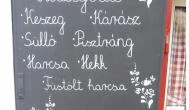 · Keszeg · Kárász
· Süllő · Pisztráng
· Harcsa · Hekk
· Füstölt harcsa